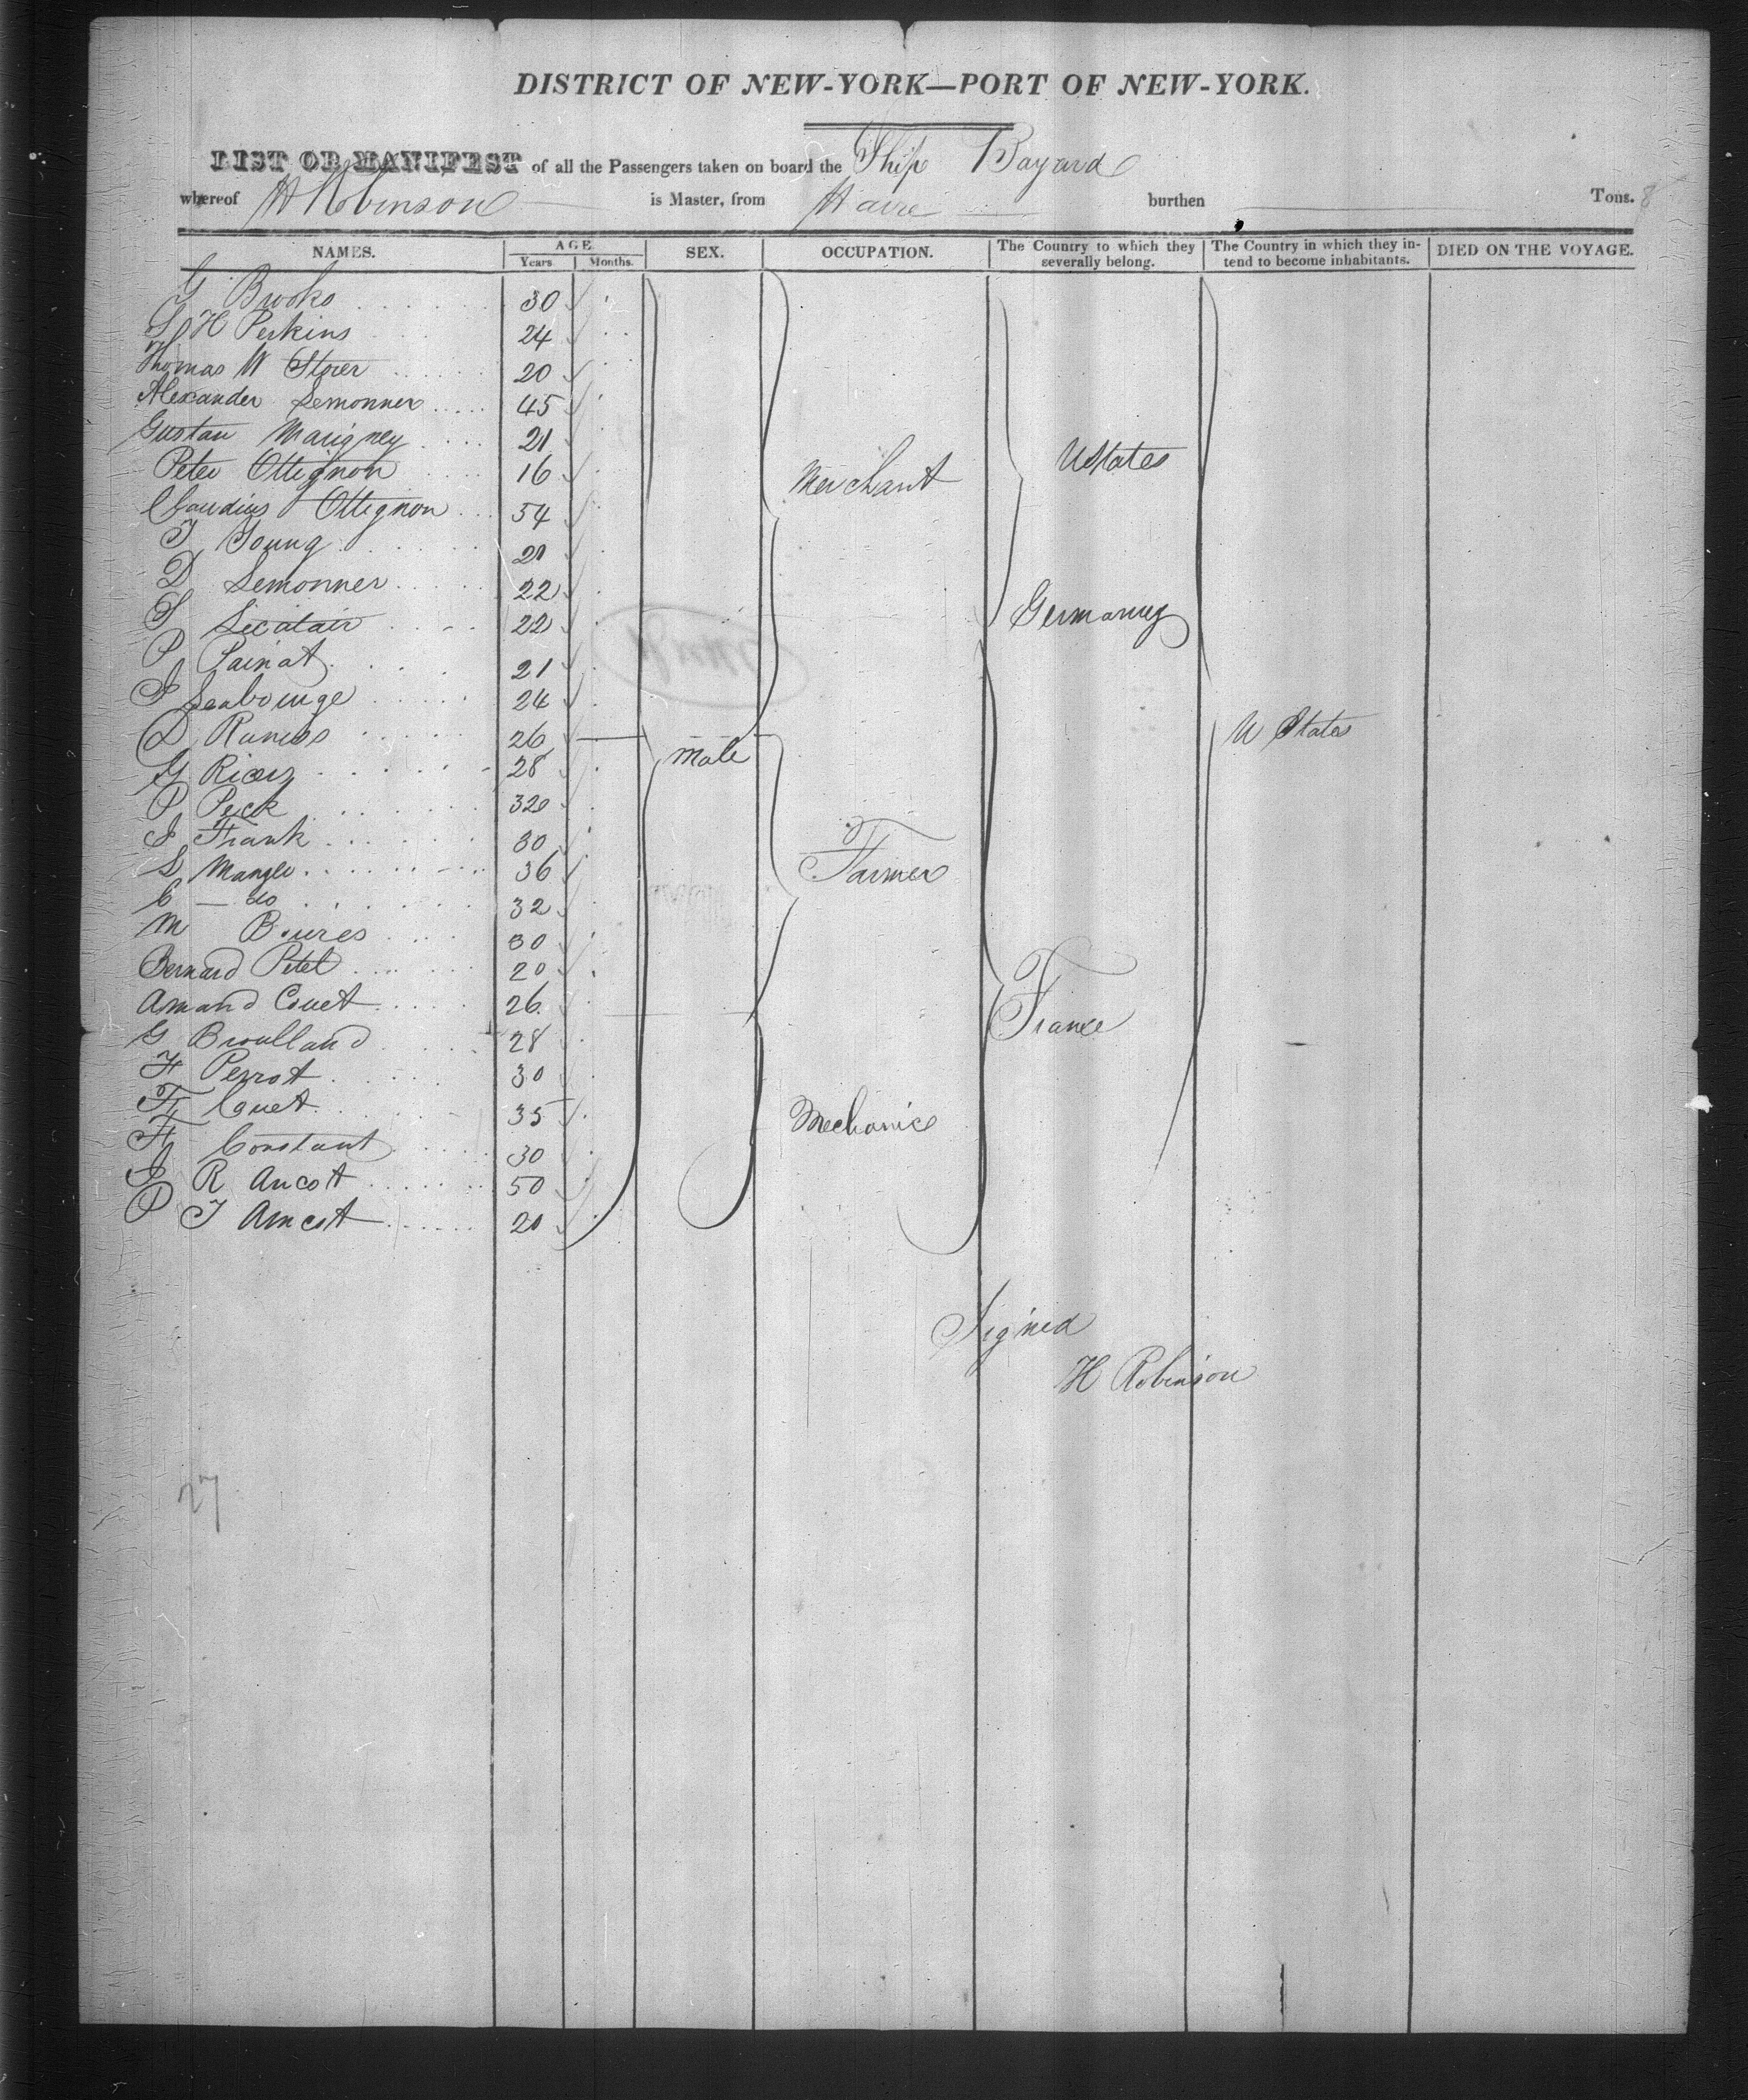 DISTRICT OF NEW-YORK—PORT OF NEW-YORK.
LIST OR MANIFEST of all the Passengers taken on board the Ship Bayard
whereof H Robinson is Master, from Havre burthen Tons. 8
NAMES. AGE SEX. OCCUPATION. The Country to which they severally belong. The Country in which they intend to become inhabitants. DIED ON THE VOYAGE.
Years. Months.
G Brooks 30
H Perkins 24
Thomas W Storer 20
Alexander Lemonner 45
Gustau Marigney 21
Peter Ottignon 16 Merchant UStates
Claudius Ottignon 54
J Young 21
D Lemonner 22
S 22 Germany
P Painat 21
J 24
D 26 male U States
G 28
P Peck 32
J Frank 30
S Mangle 36 Farmer
C — do 32
M 30
Bernard Petel 20
Amand Couet 26 France
G Broulland 28
F Perrot 30
F Couet 35 Mechanics
F Constant 30
J R Ancott 50
P J Amcott 20
Signed
H Robinson
27